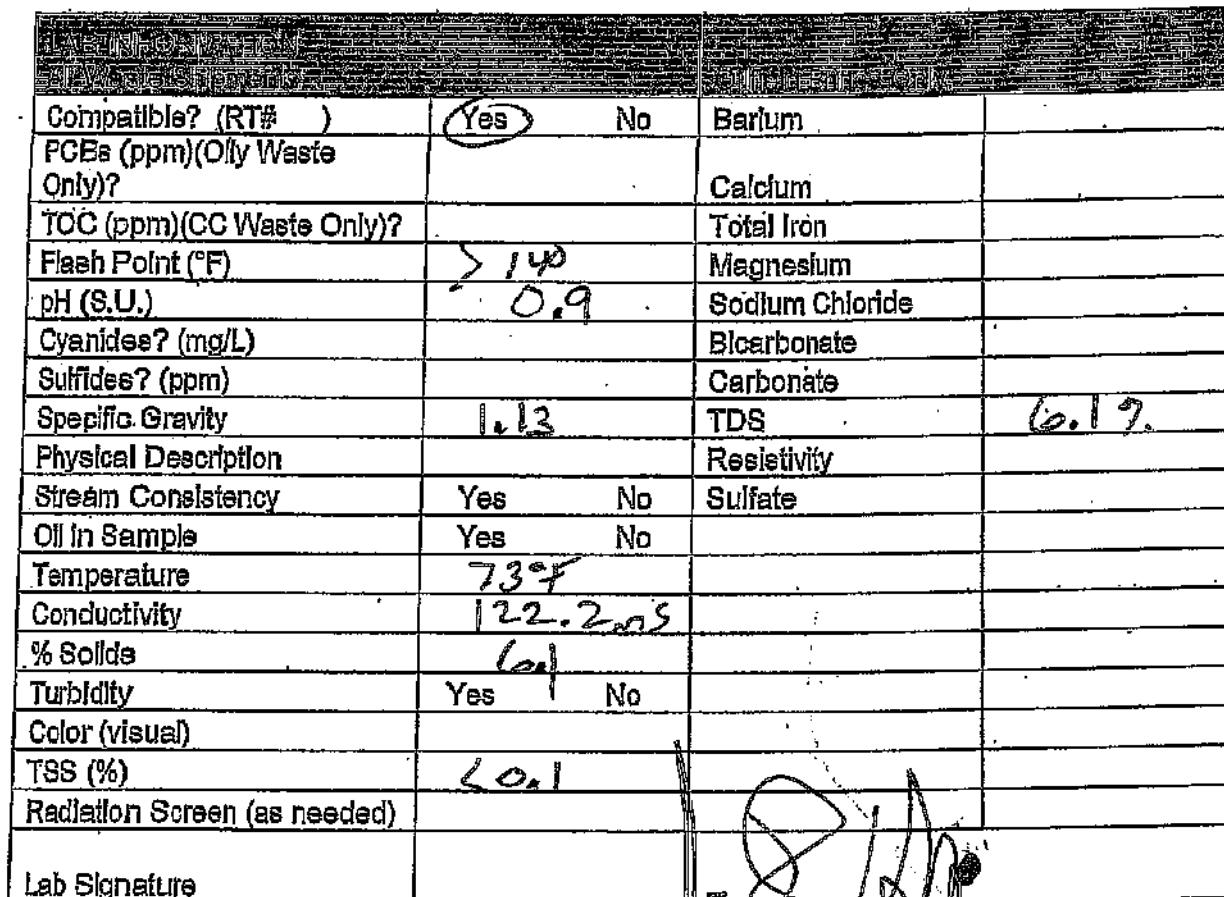 LAB INFORMATION
All Waste Shipments
Compatible? (RT# ) Yes No Barium
PCBs (ppm)(Oily Waste
Only)? Calcium
TOC (ppm)(CC Waste Only)? Total Iron
Flash Point (°F) > 140 Magnesium
pH (S.U.) 0.9 Sodium Chloride
Cyanides? (mg/L) Bicarbonate
Sulfides? (ppm) Carbonate
Specific Gravity 1.13 TDS 6.1%
Physical Description Resistivity
Stream Consistency Yes No Sulfate
Oil in Sample Yes No
Temperature 73°F
Conductivity 122.2mS
% Solids 6.1
Turbidity Yes No
Color (visual)
TSS (%) <0.1
Radiation Screen (as needed)
Lab Signature